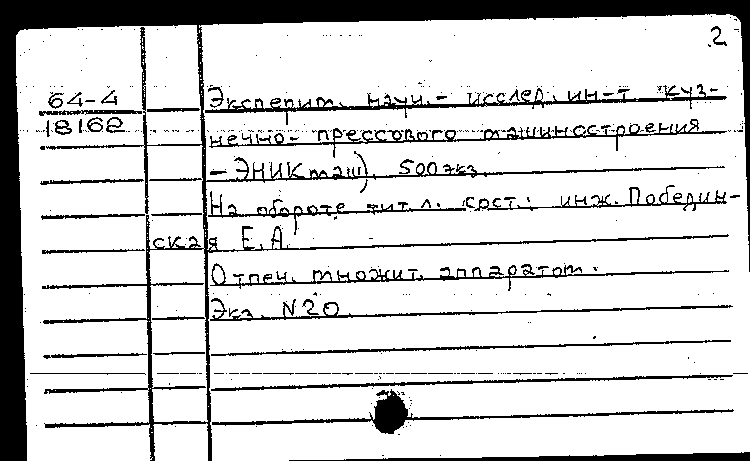 2
64-4
18162
Эксперим. научн.- исслед. ин-т куз-
нечно- прессового машиностроения
-ЭНИКмаш). 500экз.
На обороте тит. л. сост.: инж. Победин-
ская Е.А.
Отпеч. множит. аппаратом.
Экз. N20